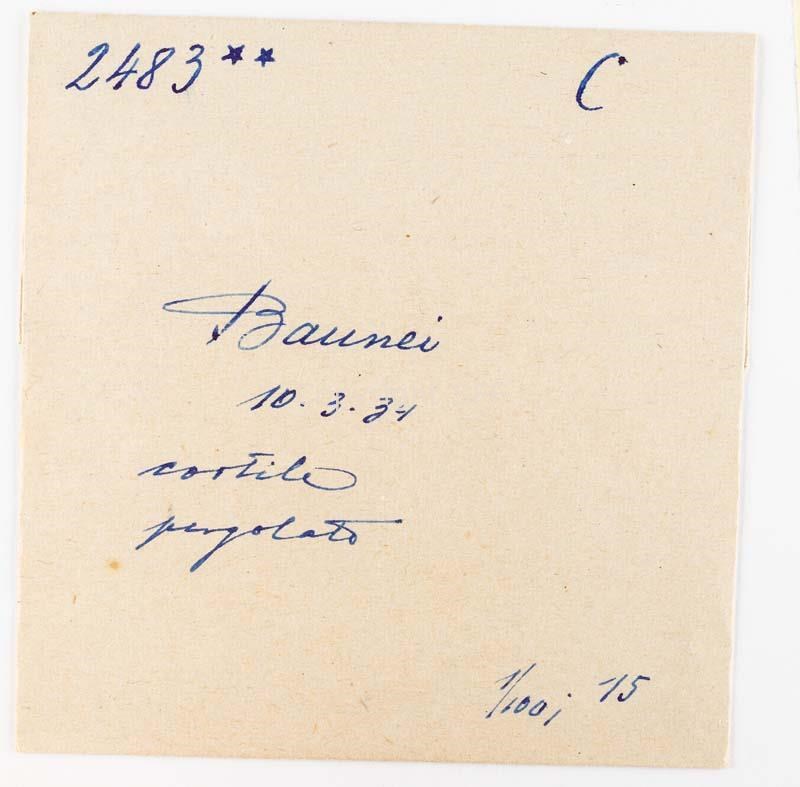 2483** C
Baunei
10.3.34
cortile
pergolato
1/100; 15